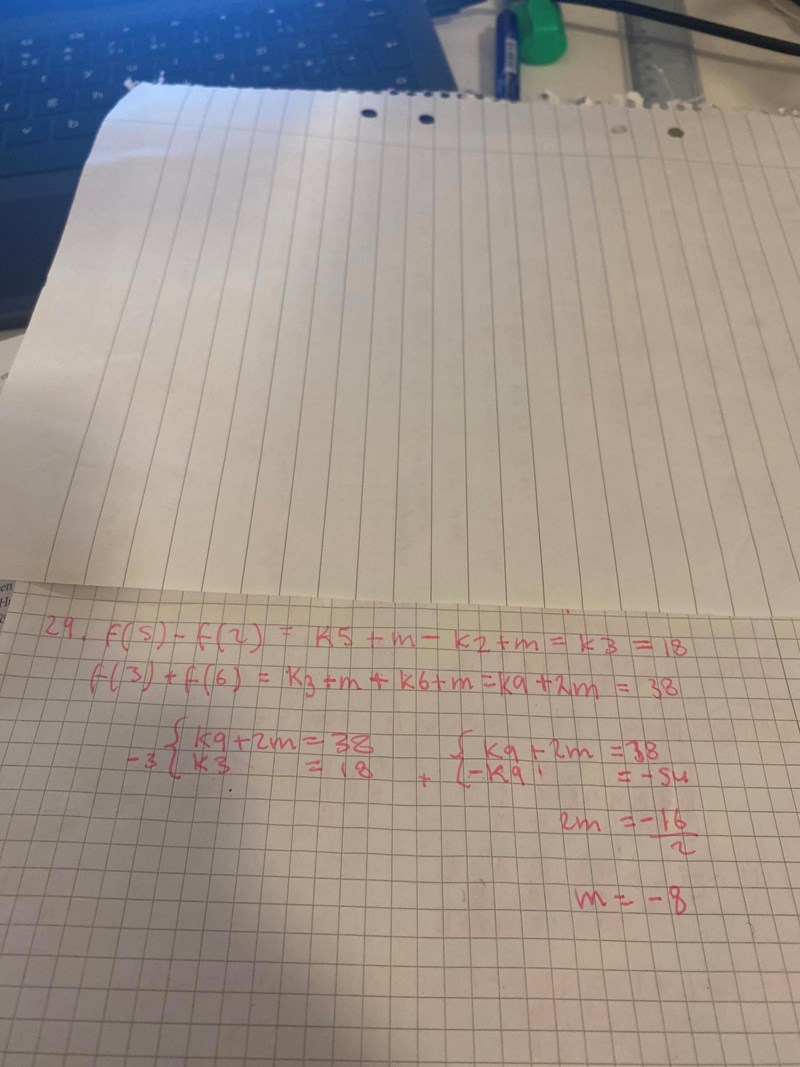 29. f(5) - f(2) = k5 + m - k2 + m = k3 = 18
f(3) + f(6) = k3 + m + k6 + m = k9 + 2m = 38
{ k9 + 2m = 38
-3 { k3 = 18
{ k9 + 2m = 38
+ { -k9 = -54
2m = -16
2
m = -8